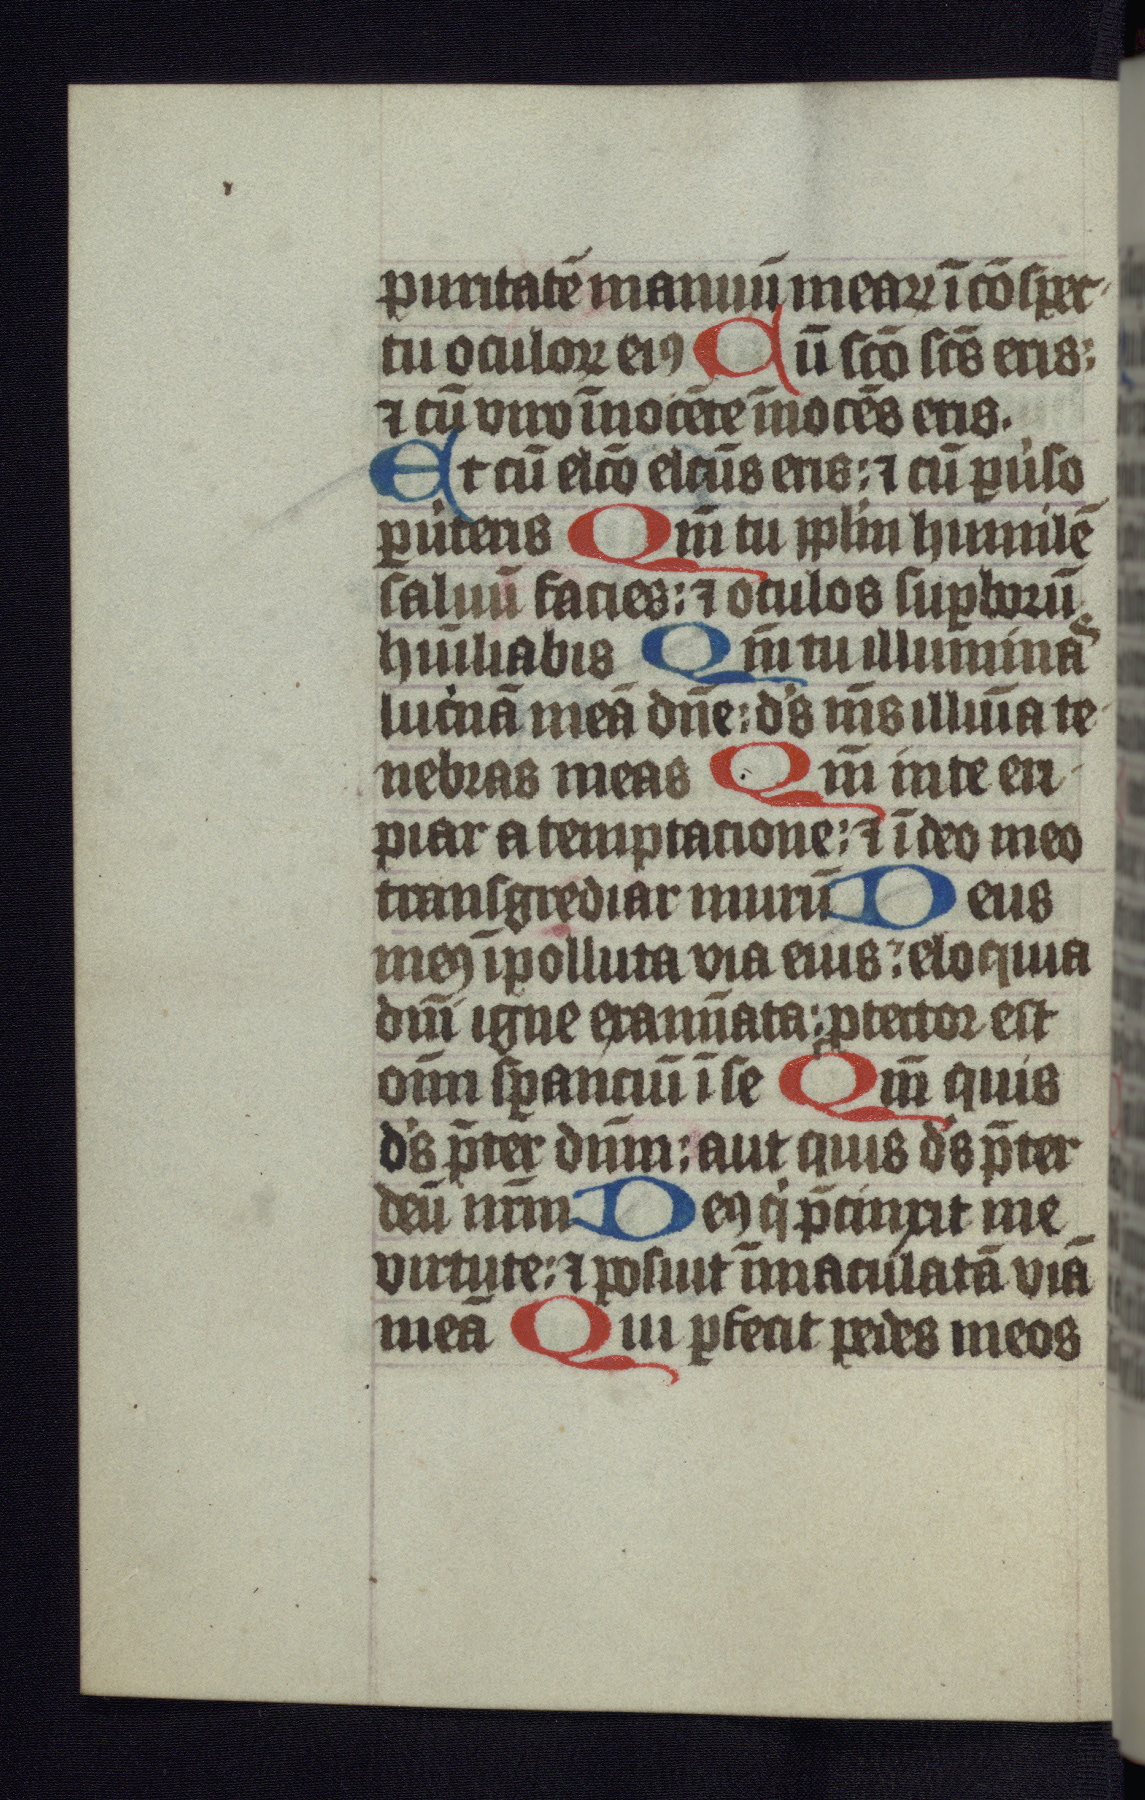 puritatē manuū mearꝝ ī cōspec
tu oculorꝝ eiꝯ Cū sc̄o sc̄s eris:
⁊ cū viro īnocēte īnocēs eris.
Et cū elc̄o elcūs eris: ⁊ cū puͥso
puͥteris Qm̄ tu pplm̄ humilē
saluū facies: ⁊ oculos supborū
hūiliabis Qm̄ tu illūmīnas
lucͥnā meā dn̄e: ds̓ m̄s illuīa te
nebras meas Qm̄ in te eri
piar a temptacione: ⁊ ī deo meo
transgrediar murū Deus
meꝯ īpolluta via eius: eloquia
dn̄i igne exann̄ata: ꝓtector est
oīm sꝑanciū ī se Qm̄ quis
ds̓ p̄ter dn̄m: aut quis ds̓ p̄ter
deū nr̄m Deꝯ qͥ p̄cinxit me
virtute: ⁊ posuit īmaculatā viā
meā Qui ꝑfecit pedes meos